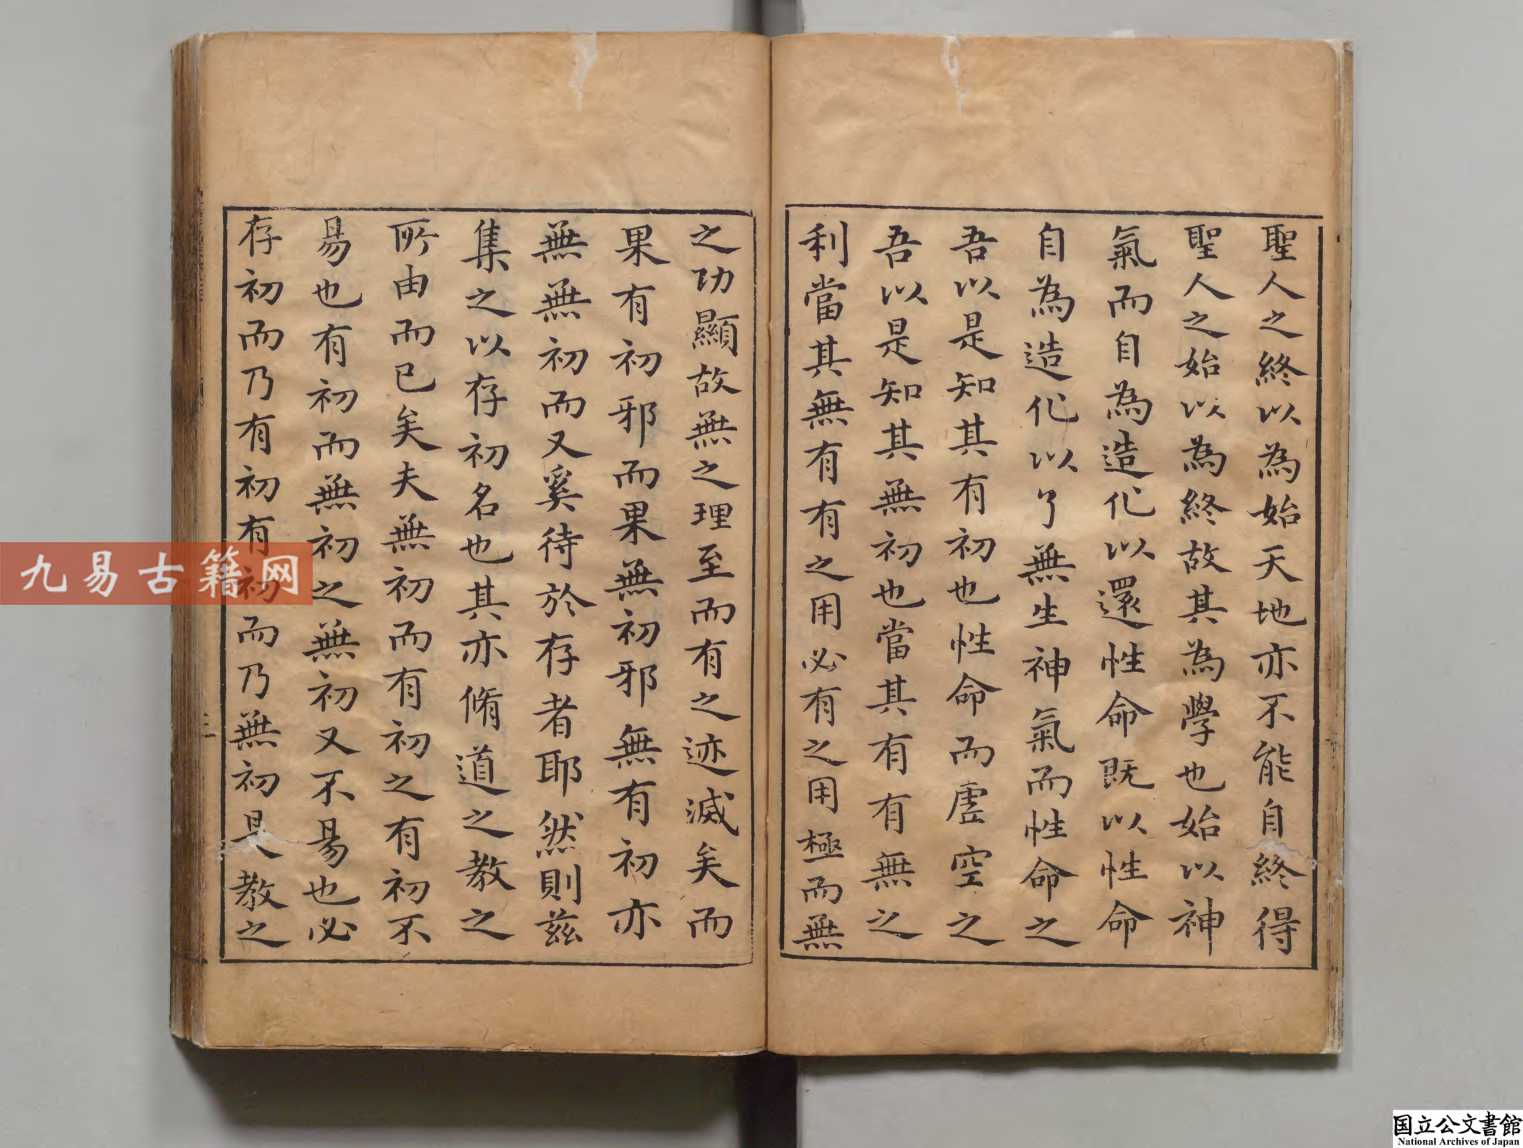 聖人之終以為始天地亦不能自終得
聖人之始以為終故其為學也始以神
氣而自為造化以還性命既以性命
自為造化以了無生神氣而性命之
吾以是知其有初也性命而虛空之
吾以是知其無初也當其有有無之
利當其無有有之用必有之用極而無
之功顯故無之理至而有之迹滅矣而
果有初邪而果無初邪無有初亦
無無初而又奚待於存者耶然則茲
集之以存初名也其亦脩道之教之
所由而已矣夫無初而有初之有初不
易也有初而無初之無初又不易也必
存初而乃有初有初而乃無初是教之
九易古籍网
国立公文書館
National Archives of Japan